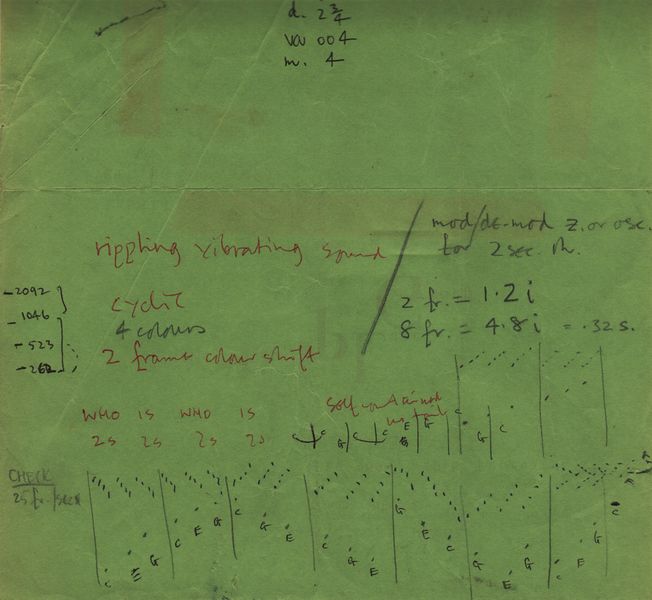 d. 2 3/4
004
m. 4
mod/de-mod z. or osc.
for 2 sec.
rippling vibrating sound
2 fr. = 1.2i
8 fr. = 4.8i = .32s.
2092
1046
523
262
cyclic
4 colours
2 frame colour shift
WHO IS WHO IS
2s 2s 2s 2s
self contained
C G C E G G
C G C
CHECK
25 fr./sec
C E G C E G C G E C G E G E C G E G C E G C